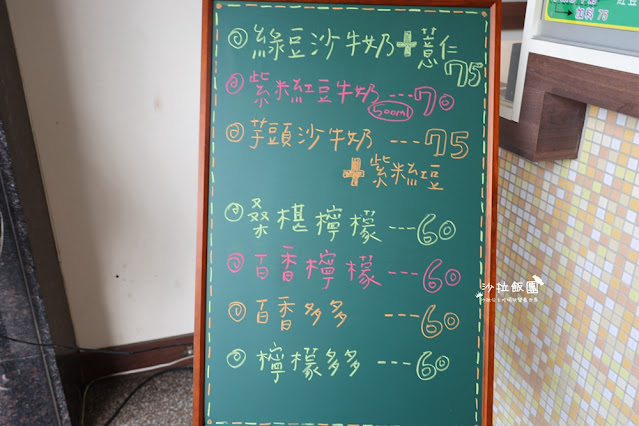 ◎綠豆沙牛奶+薏仁 75
◎紫米紅豆牛奶---70
500ml
◎芋頭沙牛奶---75
+紫米紅豆
◎桑椹檸檬---60
◎百香檸檬---60
◎百香多多---60
◎檸檬多多---60
加料 75
沙拉飯團